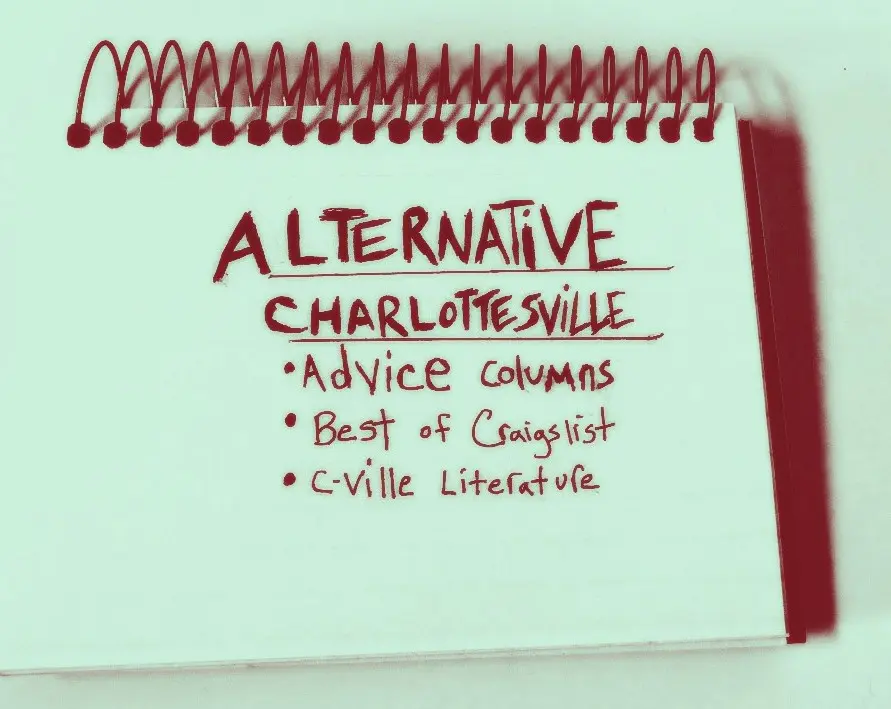 ALTERNATiVE
CHARLOTTESViLLE
• Advice columns
• Best of Craigslist
• C-Ville Literature